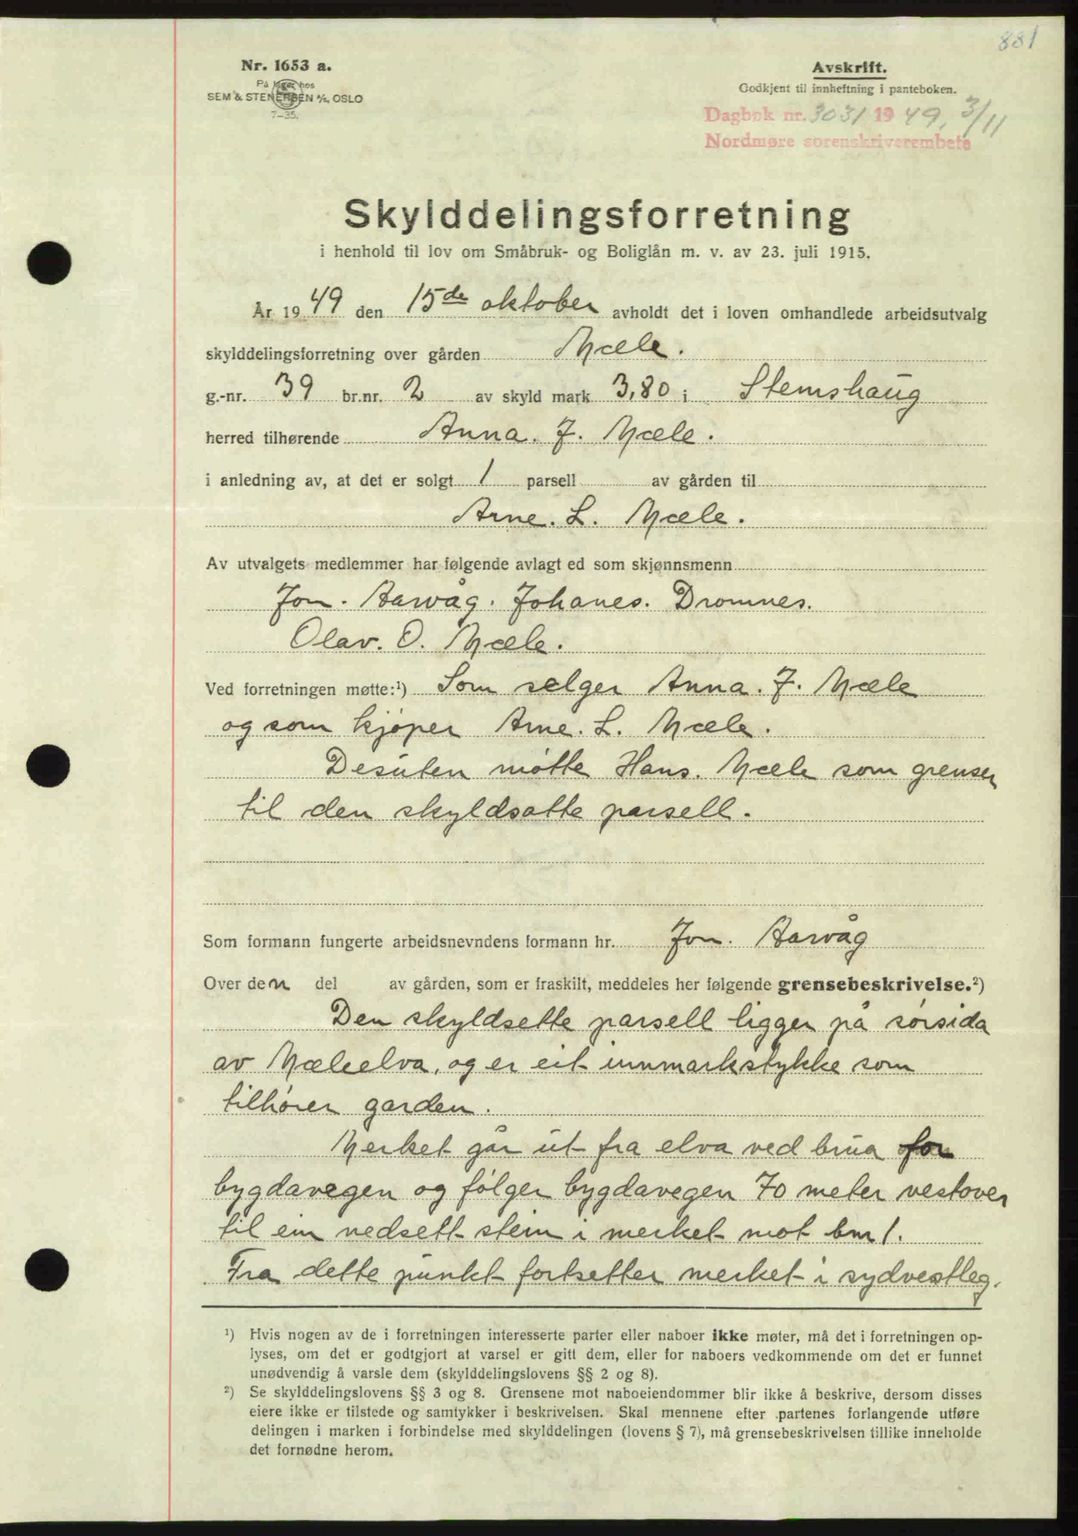 881
Nr. 1653 a.
På lager hos
SEM & STENERSEN A/S, OSLO
7–35.
Avskrift.
Godkjent til innheftning i panteboken.
Dagbok nr. 3031 1949, 3/11
Nordmøre sorenskriverembete
Skylddelingsforretning
i henhold til lov om Småbruk- og Boliglån m. v. av 23. juli 1915.
År 1949 den 15de oktober avholdt det i loven omhandlede arbeidsutvalg
skylddelingsforretning over gården Mæle.
g.-nr. 39 br.nr. 2 av skyld mark 3,80 i Stemshaug
herred tilhørende Anna. J. Mæle.
i anledning av, at det er solgt 1 parsell av gården til
Arne. L. Mæle.
Av utvalgets medlemmer har følgende avlagt ed som skjønnsmenn
Jon. Aarvåg. Johanes. Dromnes.
Olav. O. Mæle.
Ved forretningen møtte:¹) Som selger Anna. J. Mæle
og som kjøper Arne. L. Mæle.
Desuten møtte Hans. Mæle som grenser
til den skyldsatte parsell.
Som formann fungerte arbeidsnevndens formann hr. Jon. Aarvåg
Over den del av gården, som er fraskilt, meddeles her følgende grensebeskrivelse.²)
Den skyldsette parsell ligger på sørsida
av Mæleelva, og er eit innmarkstykke som
tilhører garden.
Merket går ut fra elva ved brua for
bygdavegen og følger bygdavegen 70 meter vestover
til ein nedsett stein i merket mot bnr 1.
Fra dette punkt fortsetter merket i sydvestleg.
¹) Hvis nogen av de i forretningen interesserte parter eller naboer ikke møter, må det i forretningen op-
lyses, om det er godtgjort at varsel er gitt dem, eller for naboers vedkommende om det er funnet
unødvendig å varsle dem (skylddelingslovens §§ 2 og 8).
²) Se skylddelingslovens §§ 3 og 8. Grensene mot naboeiendommer blir ikke å beskrive, dersom disses
eiere ikke er tilstede og samtykker i beskrivelsen. Skal mennene efter partenes forlangende utføre
delingen i marken i forbindelse med skylddelingen (lovens § 7), må grensebeskrivelsen tillike inneholde
det fornødne herom.